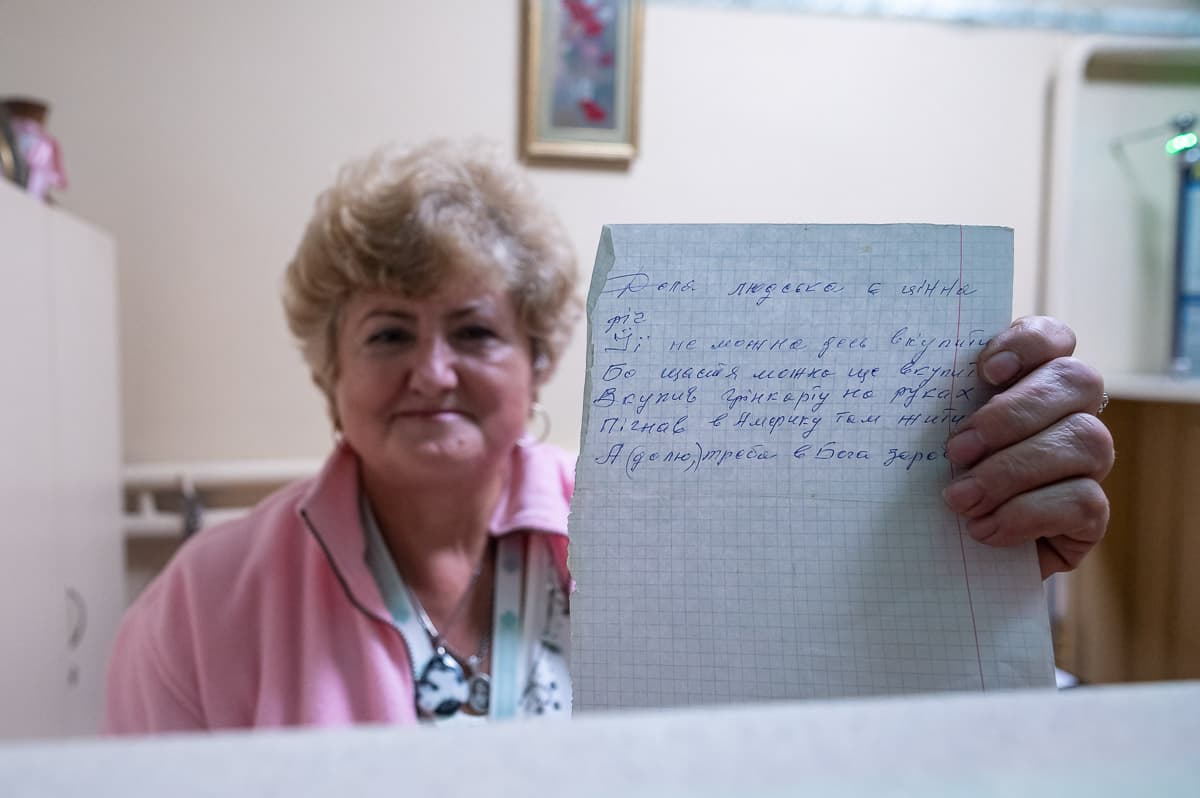 Доля людська є цінна
річ
Її не можна десь вкупити
Бо щастя можна ще вкупит
Вкупив грінкарту на руках
Пігнав в Америку там жити
А (долю,) треба в Бога